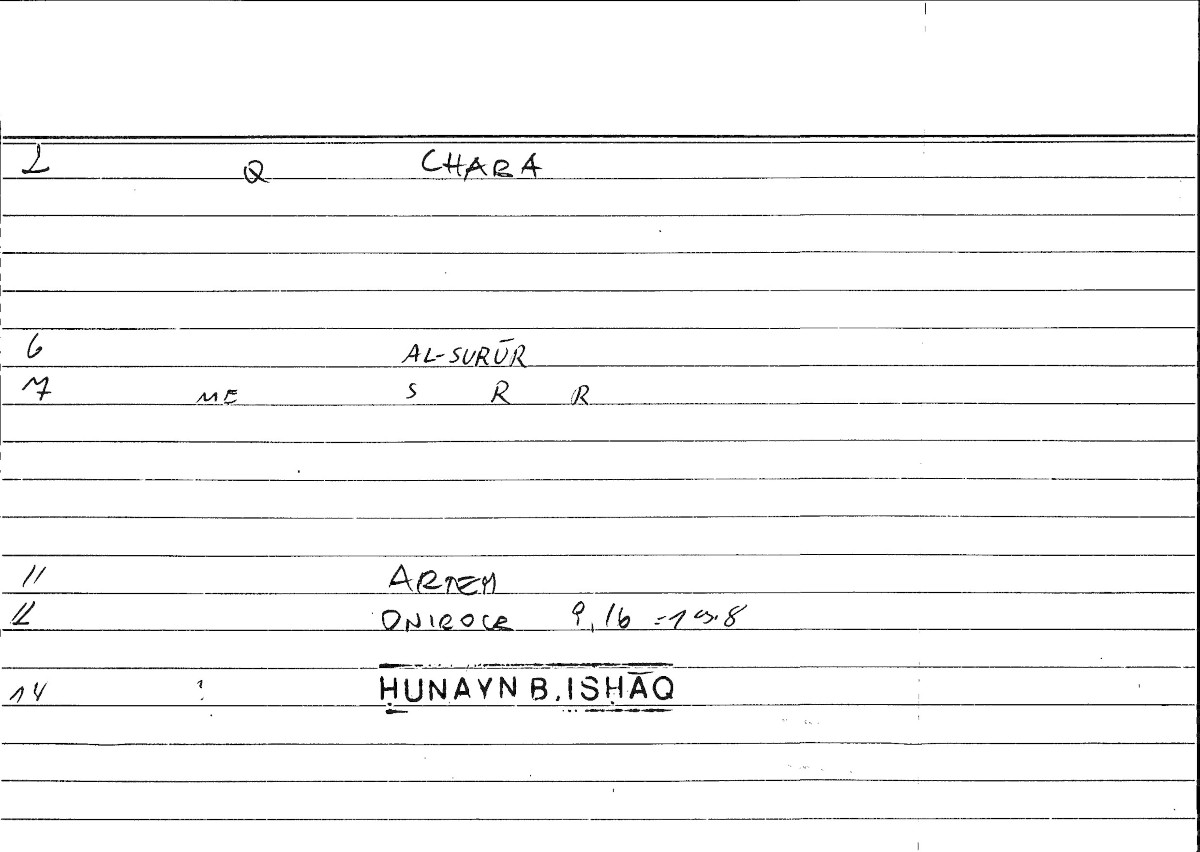 2 Q CHARA
6 AL-SURŪR
7 ME S R R
11 ARTEM
12 ONIROCR 9,16
14 ? ḤUNAYN B. ISḤĀQ